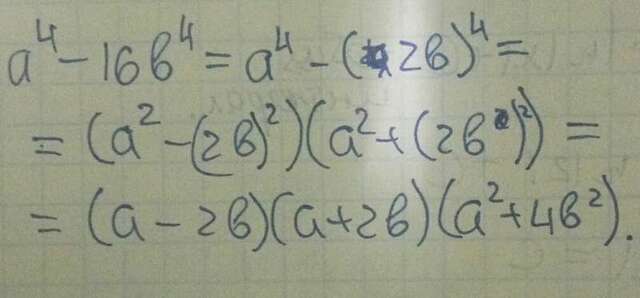 a⁴ - 16b⁴ = a⁴ - (2b)⁴ =
= (a² - (2b)²)(a² + (2b)²) =
= (a - 2b)(a + 2b)(a² + 4b²).